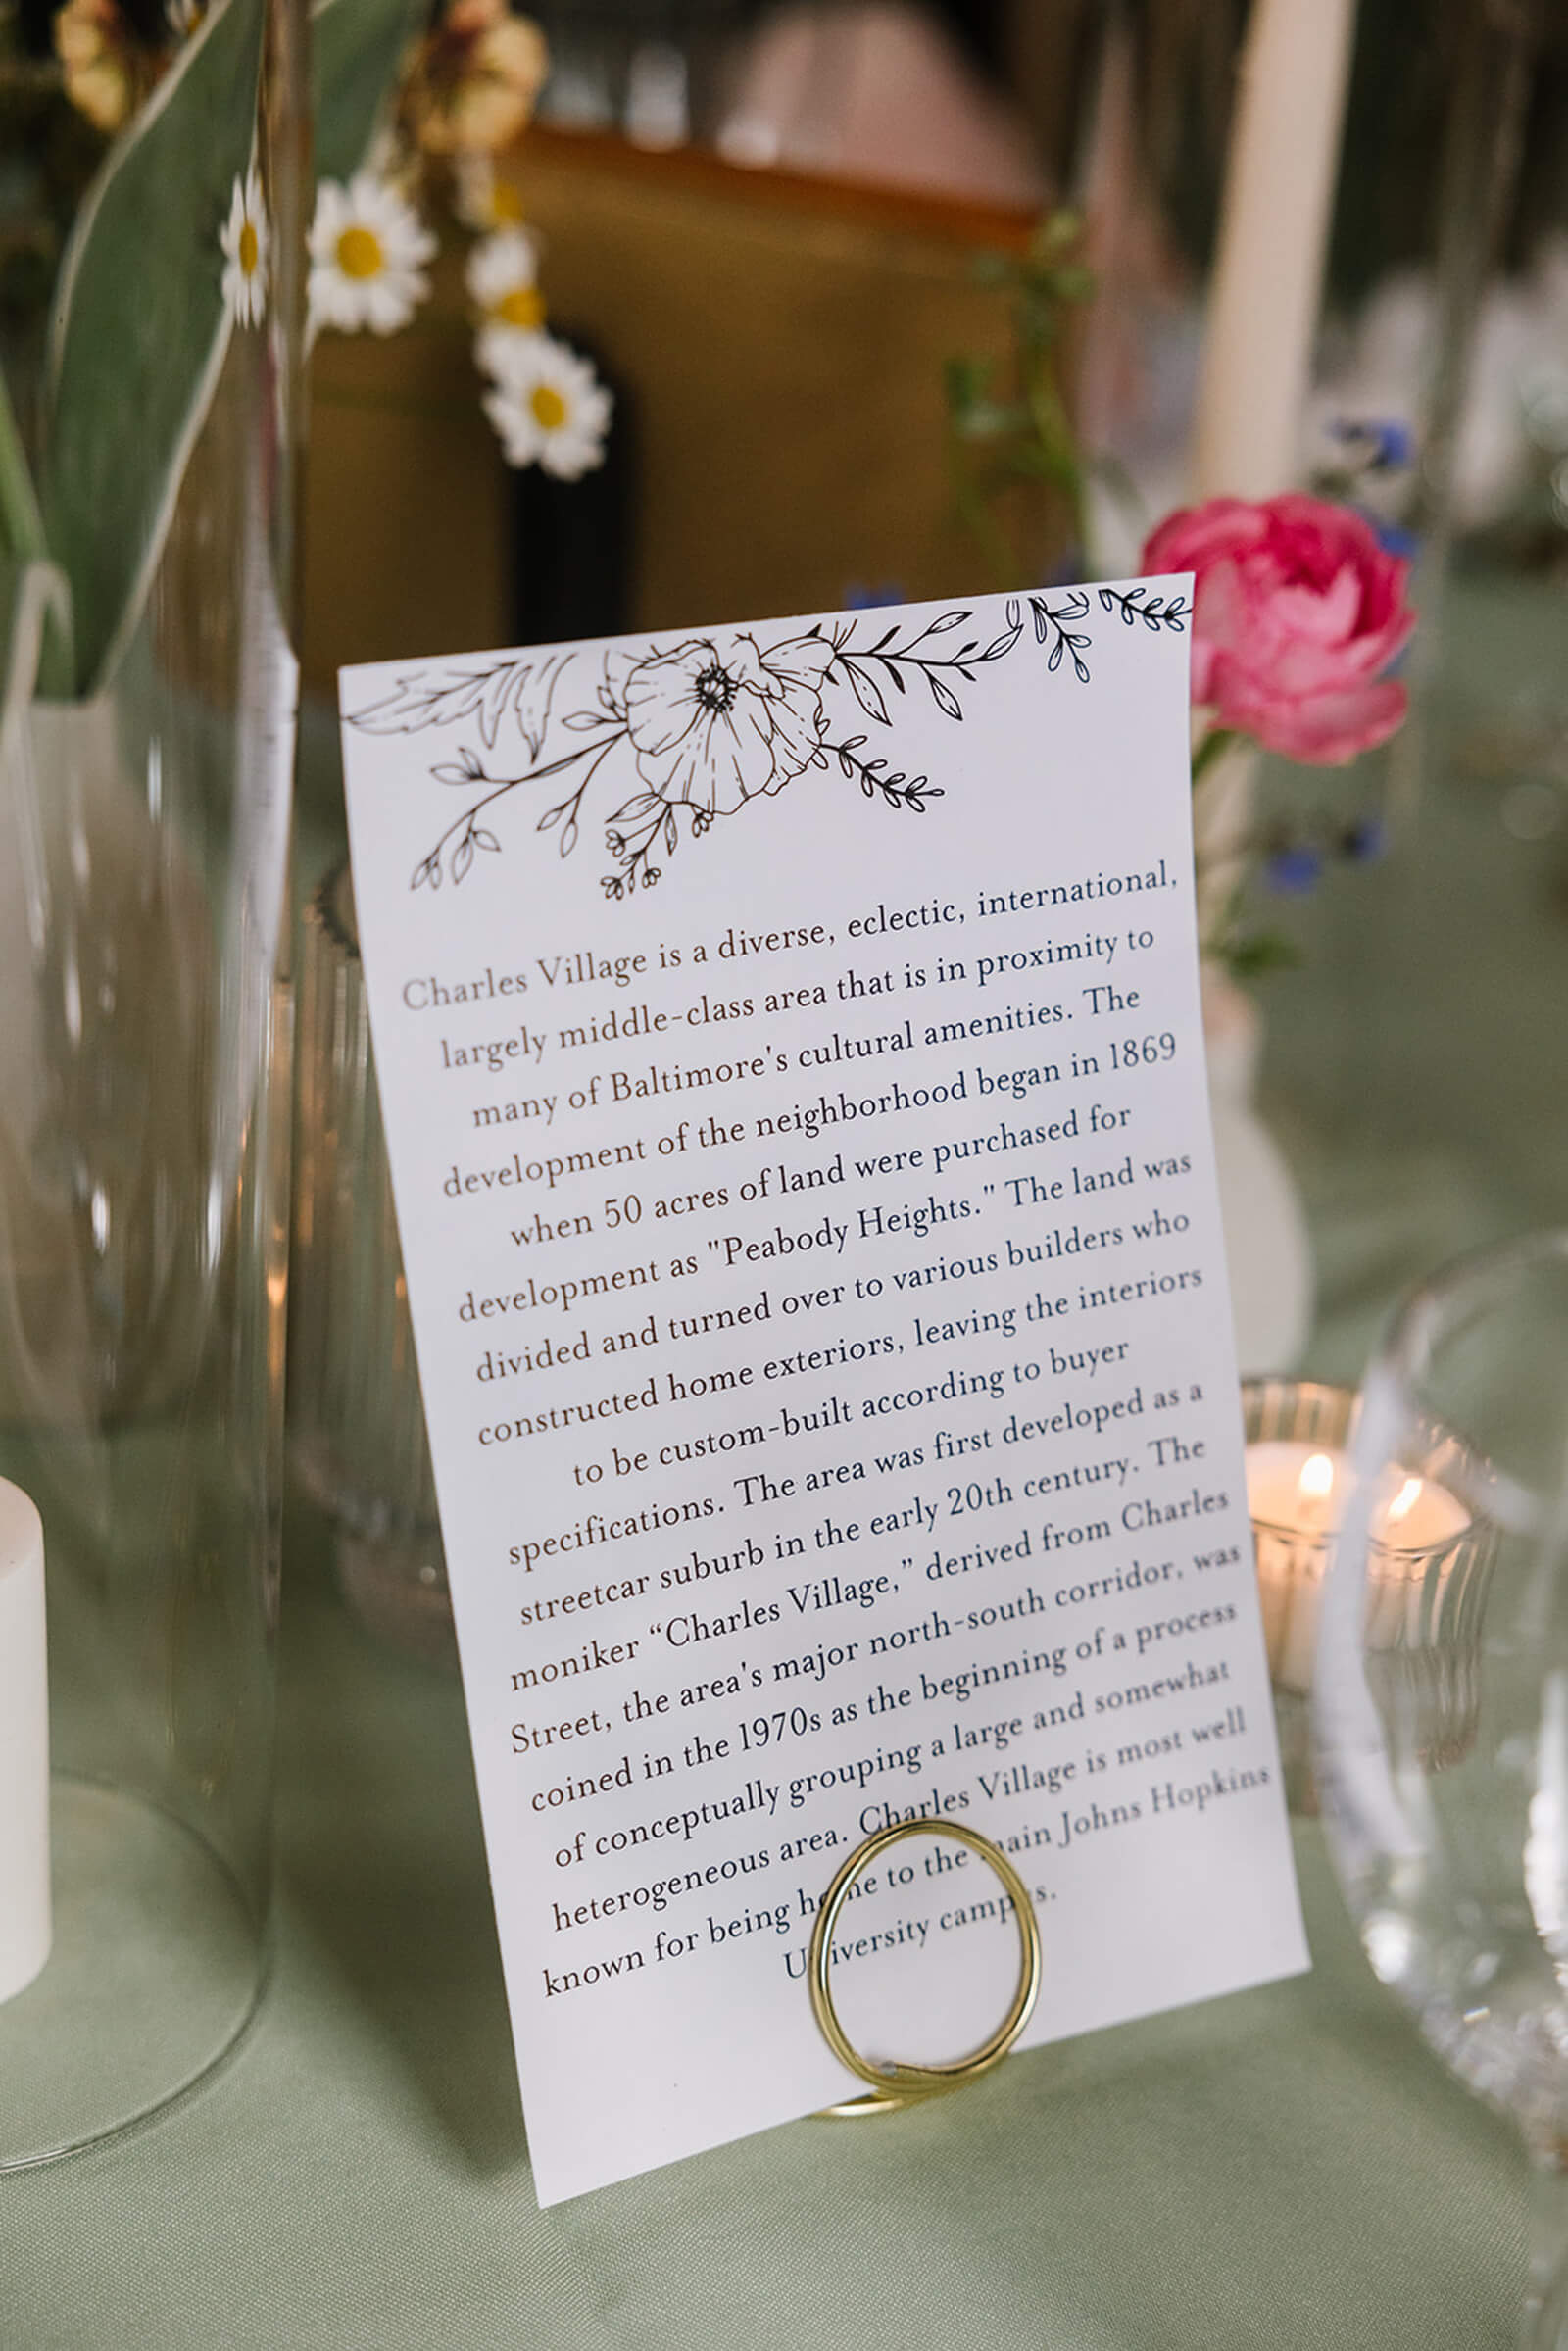 Charles Village is a diverse, eclectic, international,
largely middle-class area that is in proximity to
many of Baltimore's cultural amenities. The
development of the neighborhood began in 1869
when 50 acres of land were purchased for
development as "Peabody Heights." The land was
divided and turned over to various builders who
constructed home exteriors, leaving the interiors
to be custom-built according to buyer
specifications. The area was first developed as a
streetcar suburb in the early 20th century. The
moniker “Charles Village,” derived from Charles
Street, the area's major north-south corridor, was
coined in the 1970s as the beginning of a process
of conceptually grouping a large and somewhat
heterogeneous area. Charles Village is most well
known for being home to the main Johns Hopkins
University campus.